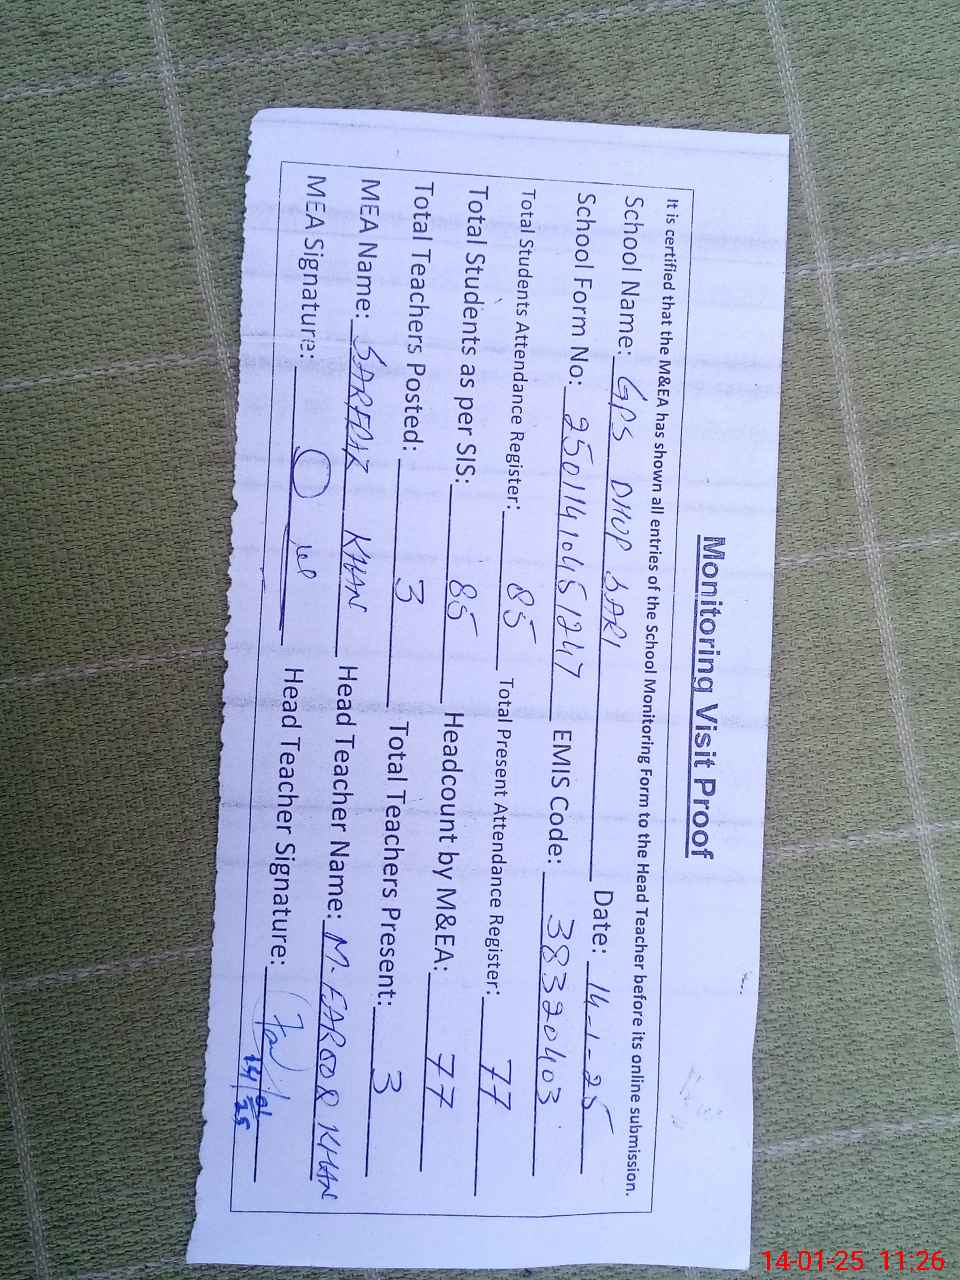 Monitoring Visit Proof
It is certified that the M&EA has shown all entries of the School Monitoring Form to the Head Teacher before its online submission.
School Name: GPS DHUP SARI Date: 14-1-25
School Form No: 25011410451247 EMIS Code: 38320403
Total Students Attendance Register: 85 Total Present Attendance Register: 77
Total Students as per SIS: 85 Headcount by M&EA: 77
Total Teachers Posted: 3 Total Teachers Present: 3
MEA Name: SARFARZ KHAN Head Teacher Name: M. FAROOQ KHAN
MEA Signature: Head Teacher Signature:
14/01/25
14-01-25 11:26